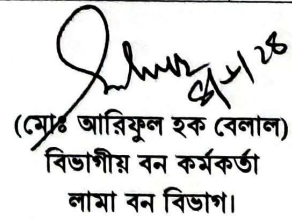 (মোঃ আরিফুল হক বেলাল)
বিভাগীয় বন কর্মকর্তা
লামা বন বিভাগ।